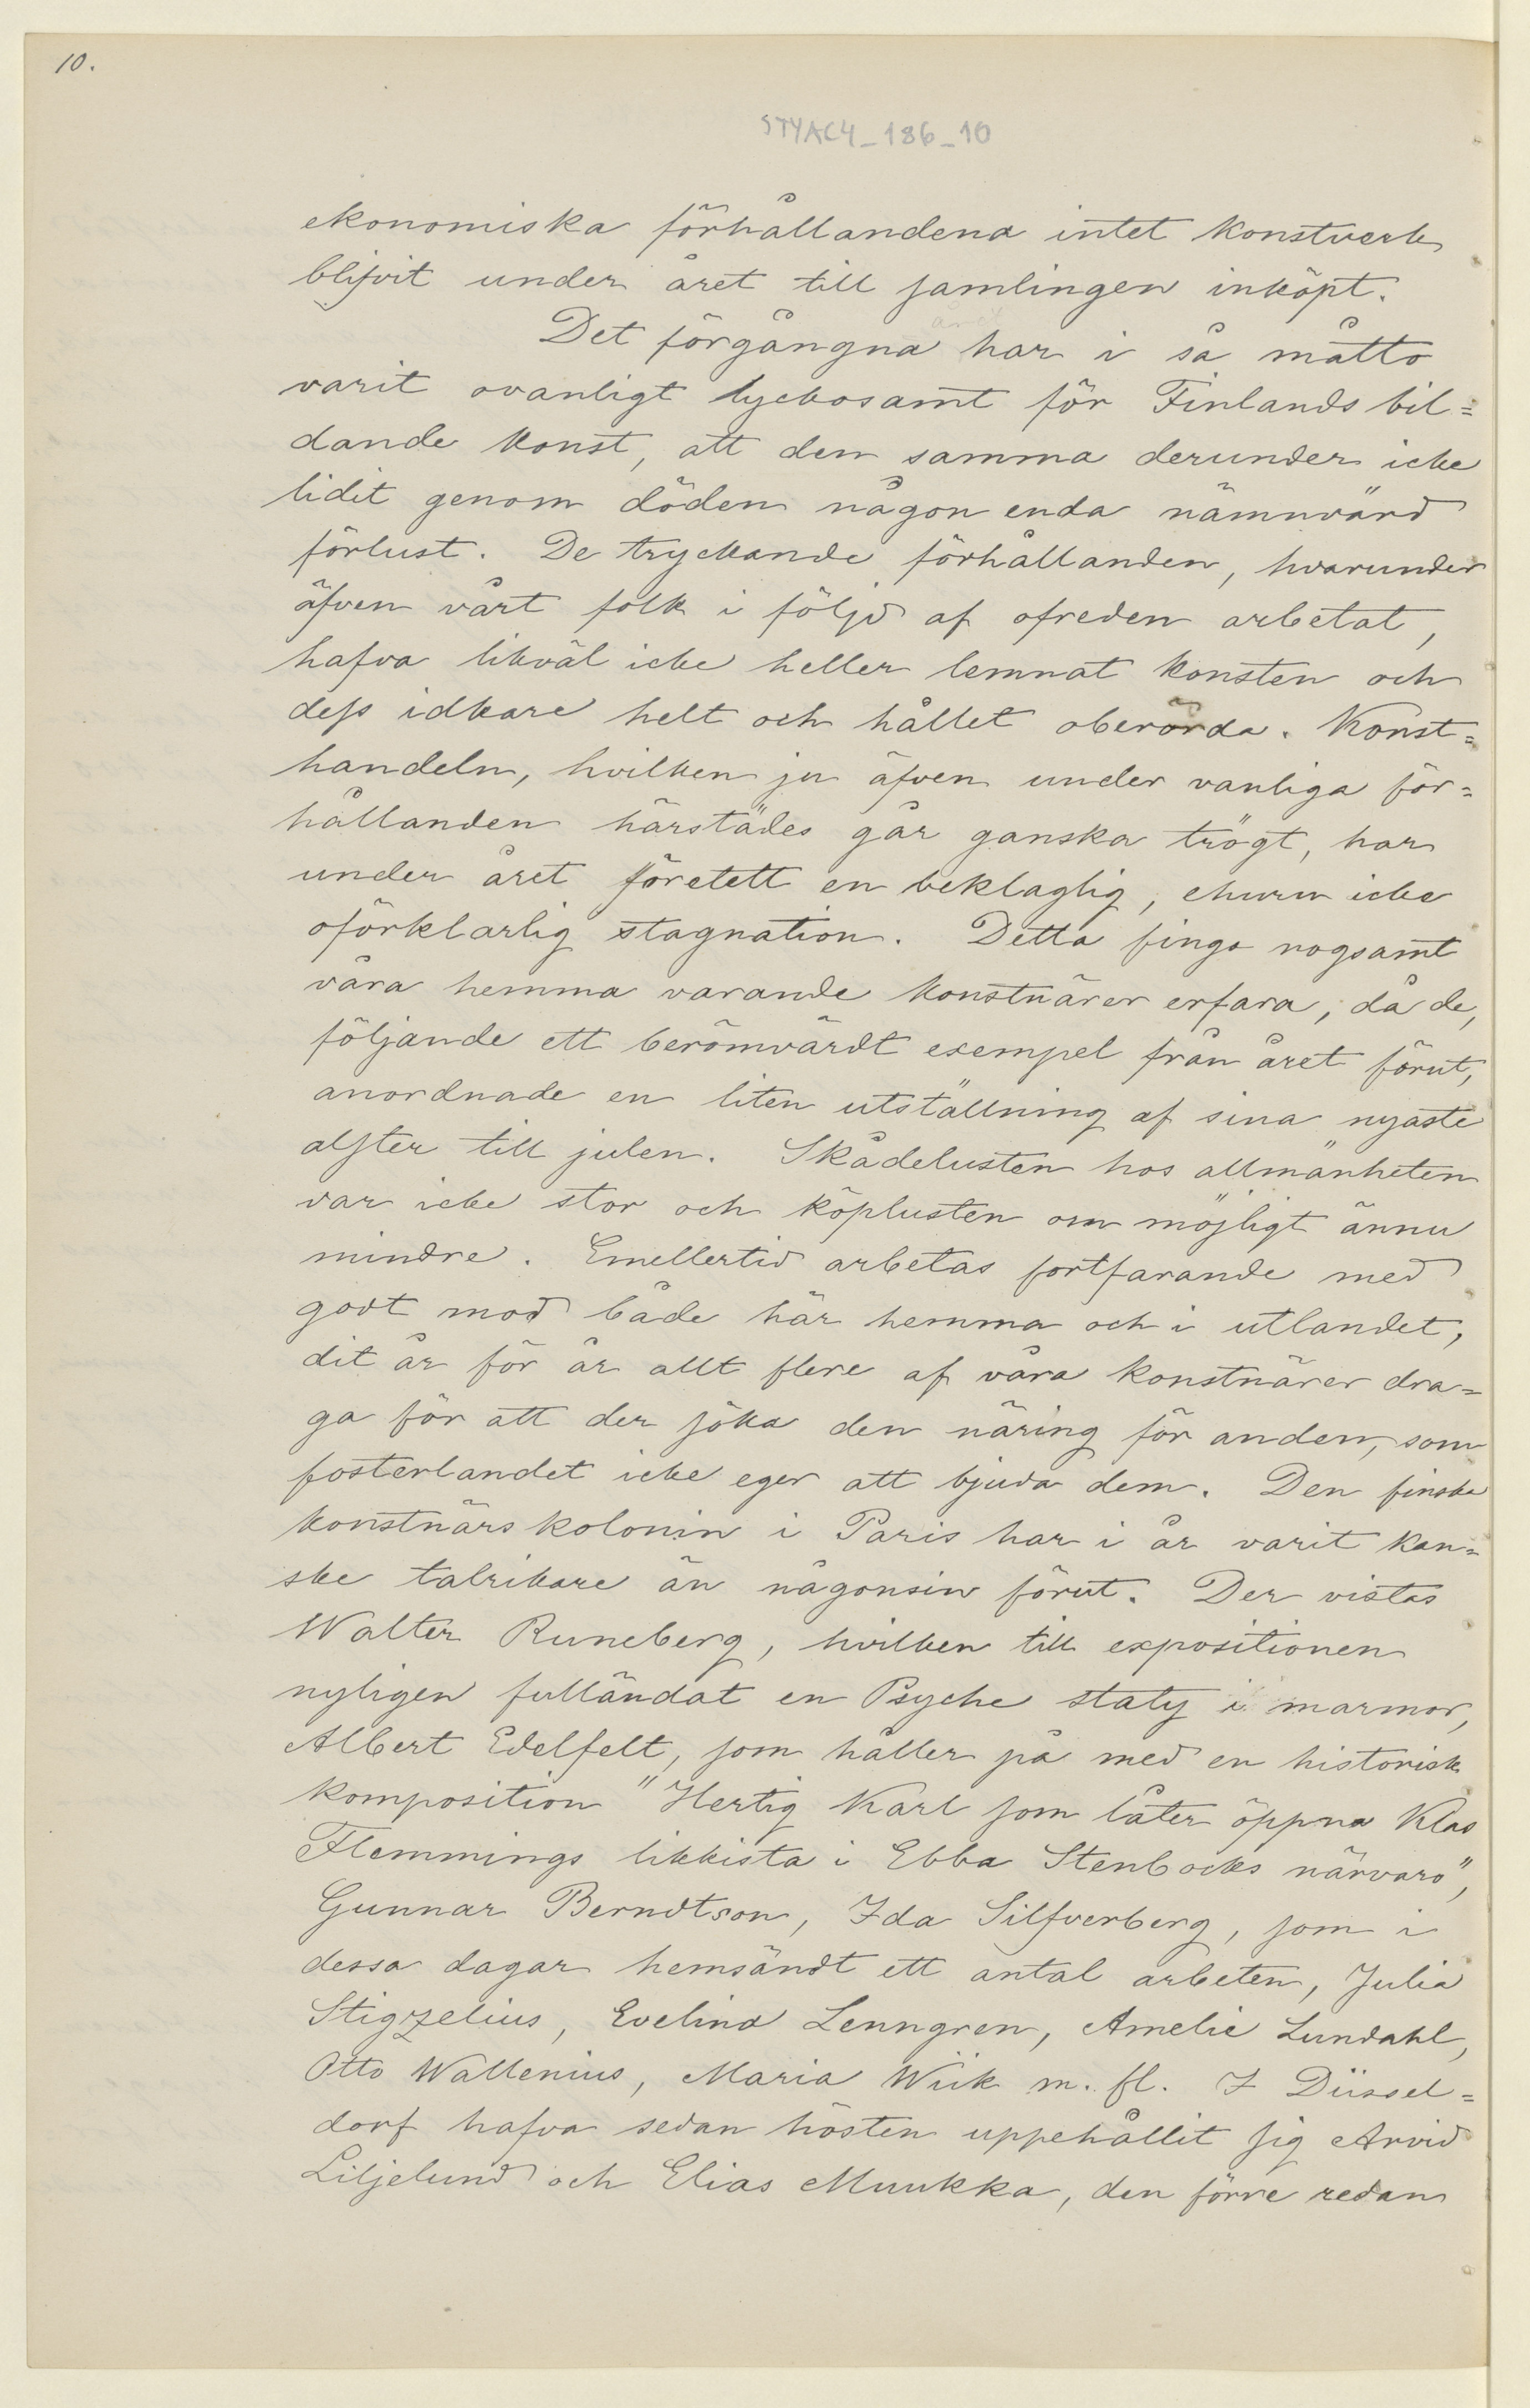 10.
STYAC4_186_10
ekonomiska förhållandena intet konstverk
blifvit under året till samlingen inköpt.
året
Det förgångna har i så måtto
varit ovanligt lyckosamt för Finlands bil=
dande konst, att den samma derunder icke
lidit genom döden någon enda nämnvärd
förlust. De tryckande förhållanden, hvarunder
äfven vårt folk i följd af ofreden arbetat,
hafva likväl icke heller lemnat konsten och
dess idkare helt och hållet oberörda. Konst=
handeln, hvilken ju äfven under vanliga för=
hållanden härstädes går ganska trögt, har
under året företett en beklaglig, ehuru icke
oförklarlig stagnation. Detta fingo nogsamt
våra hemma varande konstnärer erfara, då de,
följande ett berömvärdt exempel från året förut,
anordnade en liten utställning af sina nyaste
alster till julen. Skådelusten hos allmänheten
var icke stor och köplusten om möjligt ännu
mindre. Emellertid arbetas fortfarande med
godt mod både här hemma och i utlandet,
dit år för år allt flere af våra konstnärer dra=
ga för att der söka den näring för anden, som
fosterlandet icke eger att bjuda dem. Den finska
konstnärskolonin i Paris har i år varit kan=
ske talrikare än någonsin förut. Der vistas
Walter Runeberg, hvilken till expositionen
nyligen fulländat en Psyche staty i marmor,
Albert Edelfelt, som håller på med en historisk
komposition "Hertig Karl som låter öppna Klas
Flemmings likkista i Ebba Stenbocks närvaro",
Gunnar Berndtson, Ida Silfverberg, som i
dessa dagar hemsändt ett antal arbeten, Julia
Stigzelius, Evelina Lenngren, Amelie Lundahl,
Otto Wallenius, Maria Wiik m. fl. I Düssel=
dorf hafva sedan hösten uppehållit sig Arvid
Liljelund och Elias Muukka, den förre redan